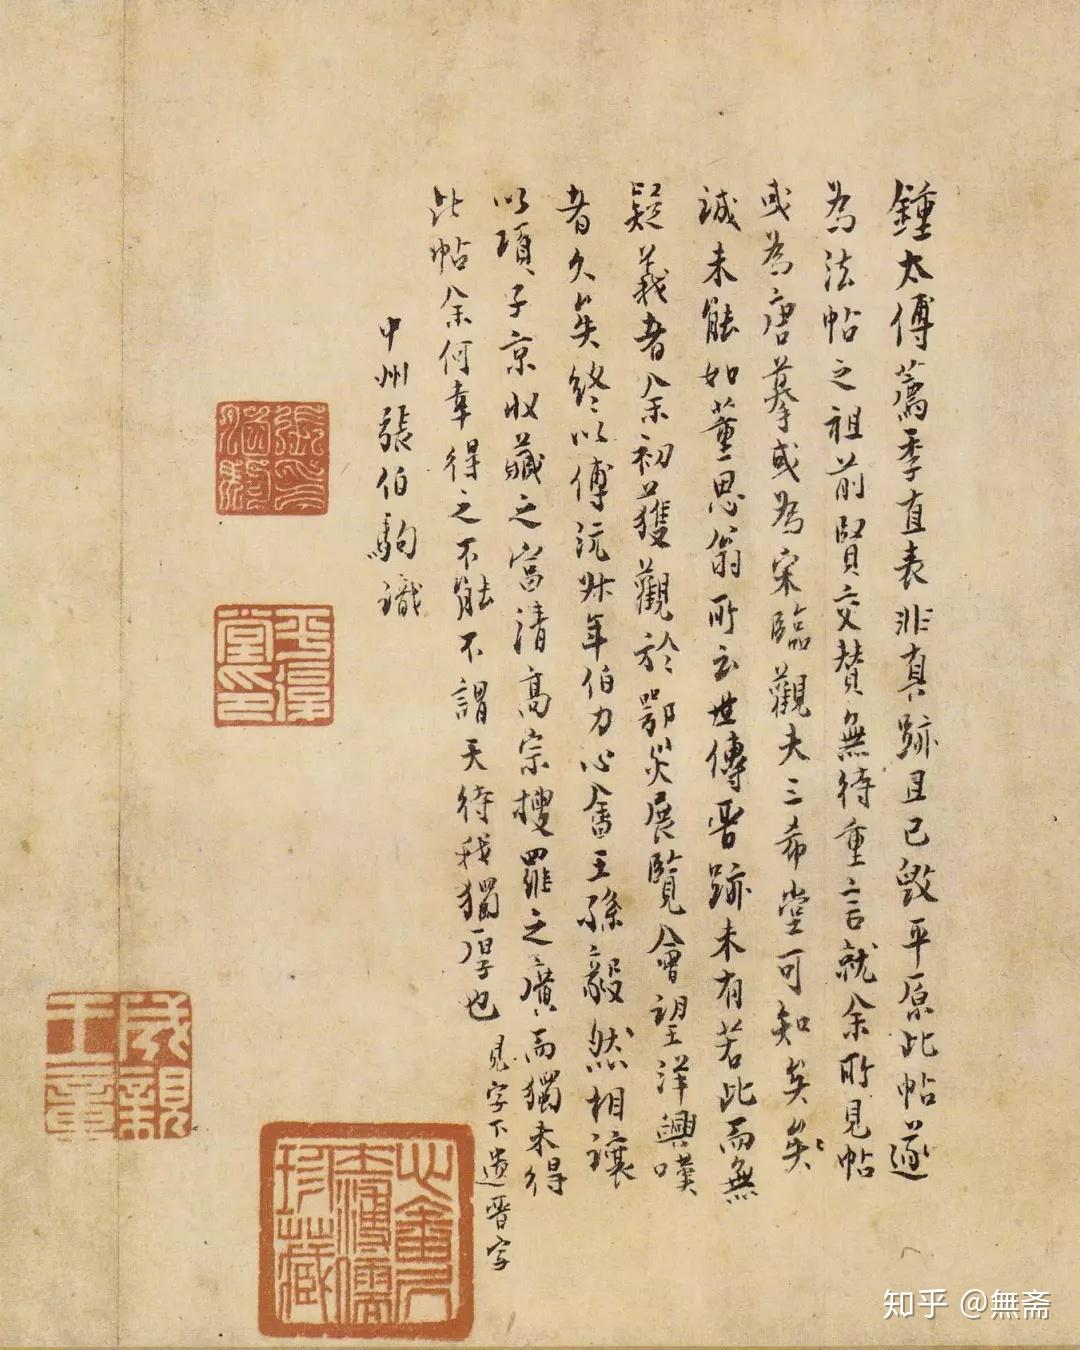 鍾太傅薦季直表非真跡且已毀平原此帖遂
為法帖之祖前賢交贊無待重言就余所見帖
或為唐摹或為宋臨觀夫三希堂可知矣矣
誠未能如董思翁所云世傳晉跡未有若此而無
疑義者余初獲觀於鄂災展覽會望洋興嘆
者久矣終以傅沅叔年伯力心畬王孫毅然相讓
以項子京收藏之富清高宗搜羅之廣而獨未得
此帖余何幸得之不能不謂天待我獨厚也 見字下遺晉字
中州張伯駒識
張印伯駒
平復堂印
溥儒珍藏
成親王章
知乎 @無斋